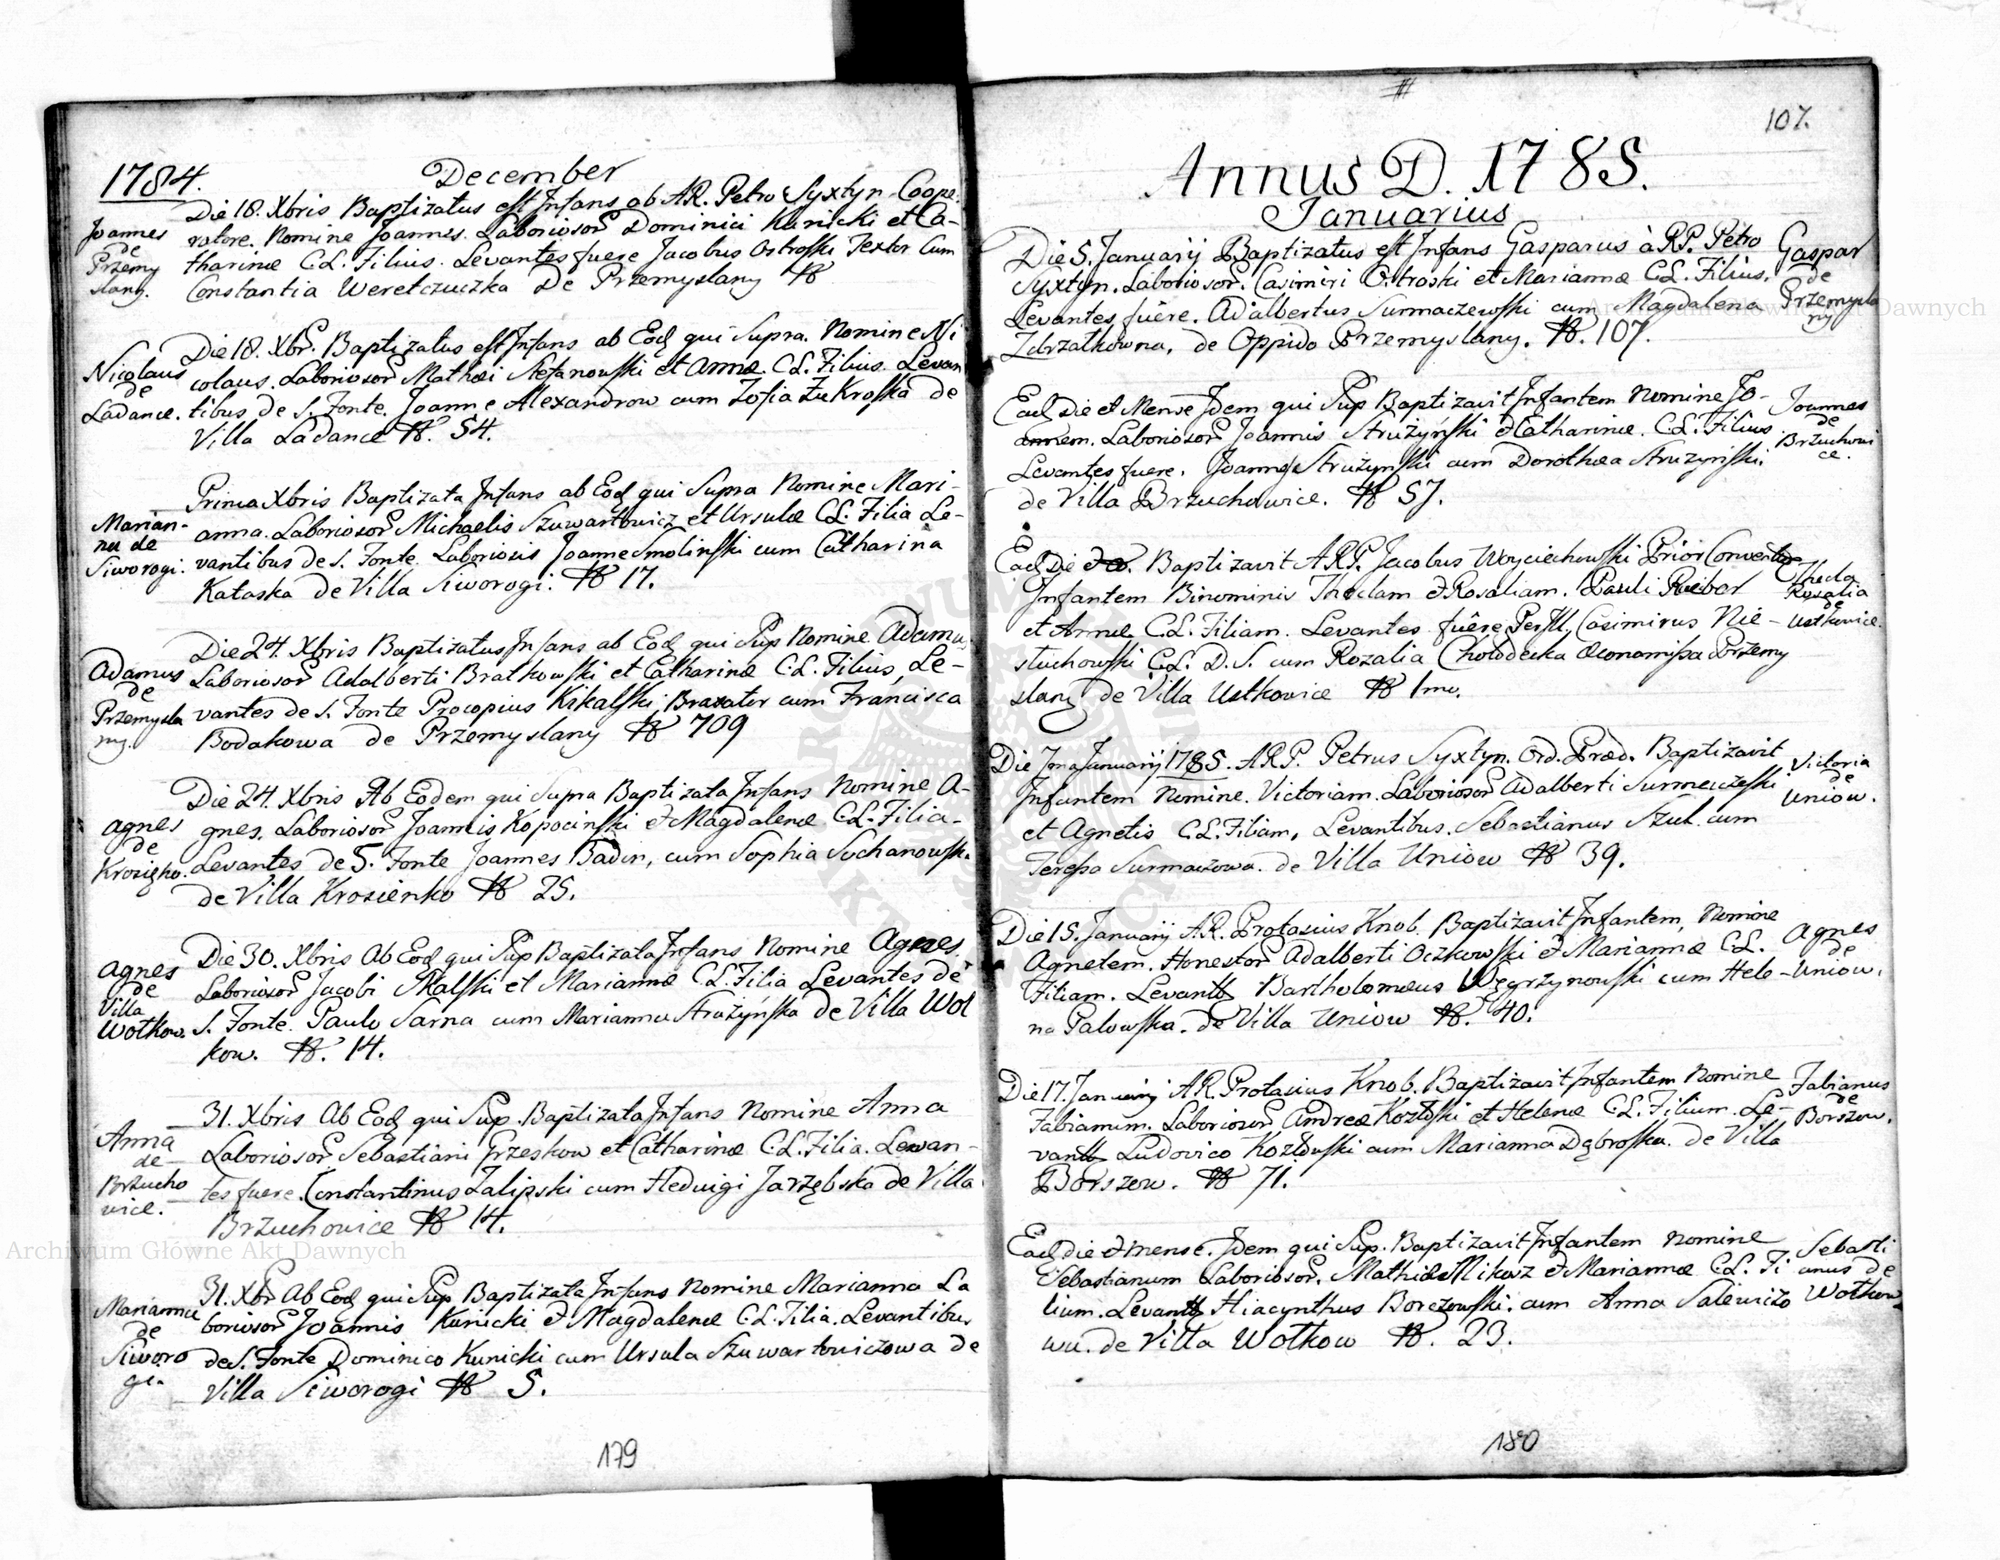 1784.
December
Joannes
de
Przemy
slany.
Die 18. Xbris Baptizatus est Infans ab A.R. Petro Syxtyn Coope.
ratore. Nomine Joannes. Laboriosor Dominici Kunicki et Ca-
tharinæ C.L. Filius. Levantes fuere Jacobus Ostroski Textor Cum
Constantia Weretczuczka De Przemyslany N
Nicolaus
de
Ladance.
Die 18. Xbr. Baptizatus est Infans ab Eod qui Supra. Nomine Ni
colaus. Laboriosor Mathæi Stefanowski et Annæ C.L. Filius. Levan
tibus de S. Fonte. Joanne Alexandrow cum Zofia Żukroska de
Villa Ladance N. 54.
Marian-
na de
Siworogi.
Prima Xbris Baptizata Infans ab Eod qui Supra Nomine Mari-
anna. Laboriosor Michaelis Szuwartowicz et Ursulæ C.L. Filia Le-
vantibus de S. Fonte. Laboriosis Joanne Smolinski cum Catharina
Kataska de Villa Siworogi. N 17.
Adamus
de
Przemysla
ny.
Die 24. Xbris Baptizatus Infans ab Eod qui Sup Nomine Adamu
Laboriosor Adalberti Bratkowski et Catharinæ C.L. Filius, Le-
vantes de S. Fonte Procopius Kikalski, Braxator cum Francisca
Bodakowa de Przemyslany N 709
Agnes
de
Krosięko.
Die 24. Xbris Ab Eodem qui Supra Baptizata Infans Nomine A-
gnes. Laboriosor Joannis Kopocinski et Magdalenæ C.L. Filia-
Levantes de S. Fonte Joannes Badin, cum Sophia Sochanowsk.
de Villa Krosienko N 25.
Agnes
de
Villa
Wołkow.
Die 30. Xbris Ab Eod qui Sup Baptizata Infans Nomine Agnes.
Laboriosor Jacobi Skalski et Mariannæ C.L. Filia Levantes de
S. Fonte. Paulo Sarna cum Marianna Strużyńska de Villa Woł
kow. N. 14.
Anna
de
Brzucho
wice.
31. Xbris Ab Eod qui Sup. Baptizata Infans Nomine Anna
Laboriosor Sebastiani Grzeskow et Catharinæ C.L. Filia. Levan-
tes fuere. Constantinus Zalipski cum Hedwigi Jarzębska de Villa
Brzuchowice N 14.
Marianna
de
Siworo
gi.
31. Xbr Ab Eod qui Sup Baptizata Infans Nomine Marianna La
boriosor Joannis Kunicki et Magdalenæ C.L. Filia. Levantibus
de S. Fonte Dominico Kunicki cum Ursula Szuwartowiczowa de
Villa Siworogi N 5.
179
107.
Annus D. 1785.
Januarius
Die 5. Januarij Baptizatus est Infans Gasparus à R.P. Petro
Syxtyn. Laboriosor. Casimiri Ostroski et Mariannæ C.L. Filius.
Levantes fuêre. Adalbertus Surmaczewski cum Magdalena
Zdrzałkowna. de Oppido Przemyslany. N. 107.
Gaspar
de
Przemysla
ny
Ead die et Mense Idem qui Sup Baptizavit Infantem Nomine Jo-
annem. Laboriosor Joannis Strużyński et Catharinæ. C.L. Filius.
Levantes fuere. Joannes Strużyński cum Dorothea Strużyński.
de Villa Brzuchowice. N 57.
Joannes
de
Brzuchowi
ce.
Ead Die Baptizavit A.R.P. Jacobus Woyciechowski Prior Conventus
Infantem Binominis Theclam et Rosaliam. Pauli Reibor
et Annæ C.L. Filiam. Levantes fuêre Perill. Casimirus Nie-
stuchowski C.L. D.S. cum Rozalia Chołodecka Œconomissa Przemy
slany de Villa Ustkowice N 1mo.
Thecla
Rosalia
de
Ustkowice.
Die 7ma Januarij 1785. A.R.P. Petrus Syxtyn. Ord. Præd. Baptizavit
Infantem Nomine. Victoriam. Laboriosor Adalberti Surmaczeski
et Agnetis C.L. Filiam, Levantibus. Sebastianus Szul. cum
Teressa Surmaczowa. de Villa Uniow N 39.
Victoria
de
Uniow.
Die 15. Januarij A.R. Protasius Knob. Baptizavit Infantem, Nomine
Agnetem. Honestor Adalberti Oczkowski et Mariannæ C.L.
Filiam. Levantt Bartholomæus Węgrzynowski cum Hele-
na Palowska. de Villa Uniow N. 40.
Agnes
de
Uniow.
Die 17. Januarij A.R. Protasius Knob. Baptizavit Infantem Nomine
Fabianum. Laboriosor Andreæ Kozłoski et Helenæ C.L. Filium. Le-
vantt Ludovico Kozłowski cum Marianna Dąbroska. de Villa
Borszow. N 71.
Fabianus
de
Borszow.
Ead die et mense. Idem qui Sup. Baptizavit Infantem Nomine
Sebastianum Laboriosor. Mathiæ Mikosz et Mariannæ C.L. Fi
lium. Levantt Hiacynthus Borczowski. cum Anna Salewiczo
wa. de Villa Wołkow N. 23.
Sebasti
anus de
Wołkow
180
Archiwum Główne Akt Dawnych
Archiwum Główne Akt Dawnych